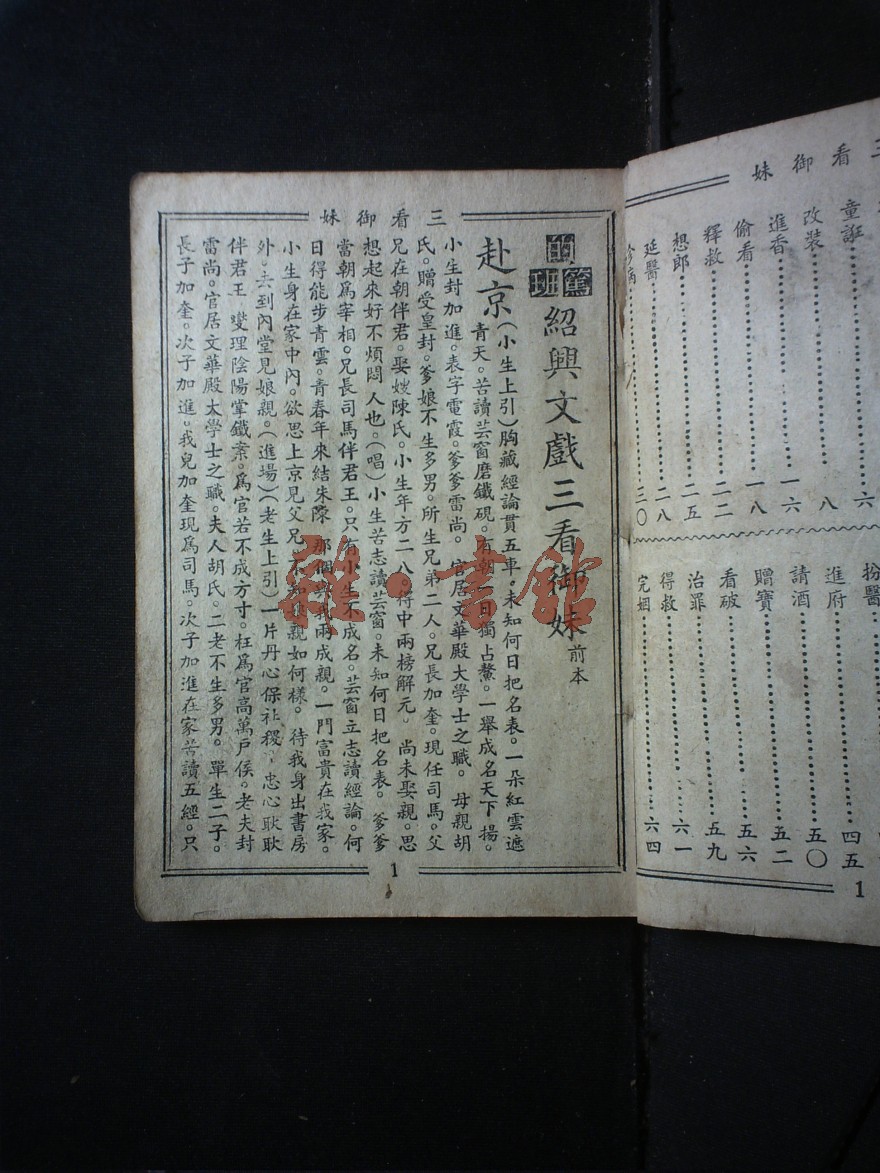 三看御妹
童誑……六
改裝……八
進香……一六
偷看……一八
釋救……二二
想郎……二五
延醫……二八
診病……二〇
扮醫
進府……四五
請酒……五〇
贈寶……五二
看破……五六
治罪……五九
得救……六一
完姻……六四
1
三看御妹
的篤班
紹興文戲三看御妹 前本
赴京(小生上引)胸藏經論貫五車。未知何日把名表。一朵紅雲遮
青天。苦讀芸窗磨鐵硯。有朝一日獨占鰲。一舉成名天下揚。
小生封加進。表字電霞。爹爹雷尚。官居文華殿大學士之職。母親胡
氏。贈受皇封。爹娘不生多男。所生兄弟二人。兄長加奎。現任司馬。父
兄在朝伴君。娶嫂陳氏。小生年方二八。得中兩榜解元。尚未娶親。思
想起來好不煩悶人也。(唱)小生苦志讀芸窗。未知何日把名表。爹爹
當朝爲宰相。兄長司馬伴君王。只有小生不成名。芸窗立志讀經論。何
日得能步青雲。青春年來結朱陳。那個與我兩成親。一門富貴在我家。
小生身在家中內。欲思上京見父兄。不知娘親如何樣。待我身出書房
外。去到內堂見娘親。(進場)(老生上引)一片丹心保社稷。忠心耿耿
伴君王。燮理陰陽掌鐵案。爲官若不成方寸。枉爲官高萬戶侯。老夫封
雷尚。官居文華殿大學士之職。夫人胡氏。二老不生多男。單生二子。
長子加奎。次子加進。我兒加奎現爲司馬。次子加進在家苦讀五經。只
1
雜·書館